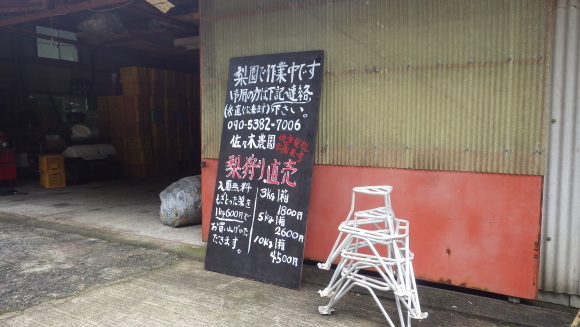 梨園で作業中です
御用の方は下記に連絡
(永遠くに居ます)下さい。
090-5382-7006
佐々木農園
梨狩り直売
入園無料
もぎとった梨を
1kg600円で
お買い上げいた
だきます。
3kg1箱
1800円
5kg1箱
2600円
10kg1箱
4500円